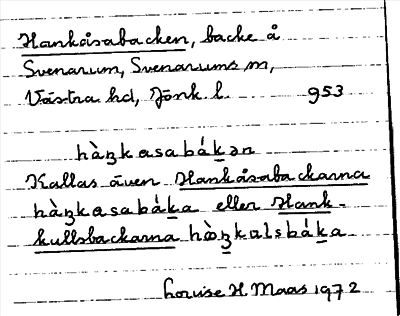 Hankåsabacken, backe å
Svenarum, Svenarums sn,
Västra hd, Jönk. l. 953
hàŋkasabákən
Kallas även Hankåsabackarna
hàŋkasabáka eller Hank-
kullsbackarna hàŋkalsbáka
Louise H. Maas 1972